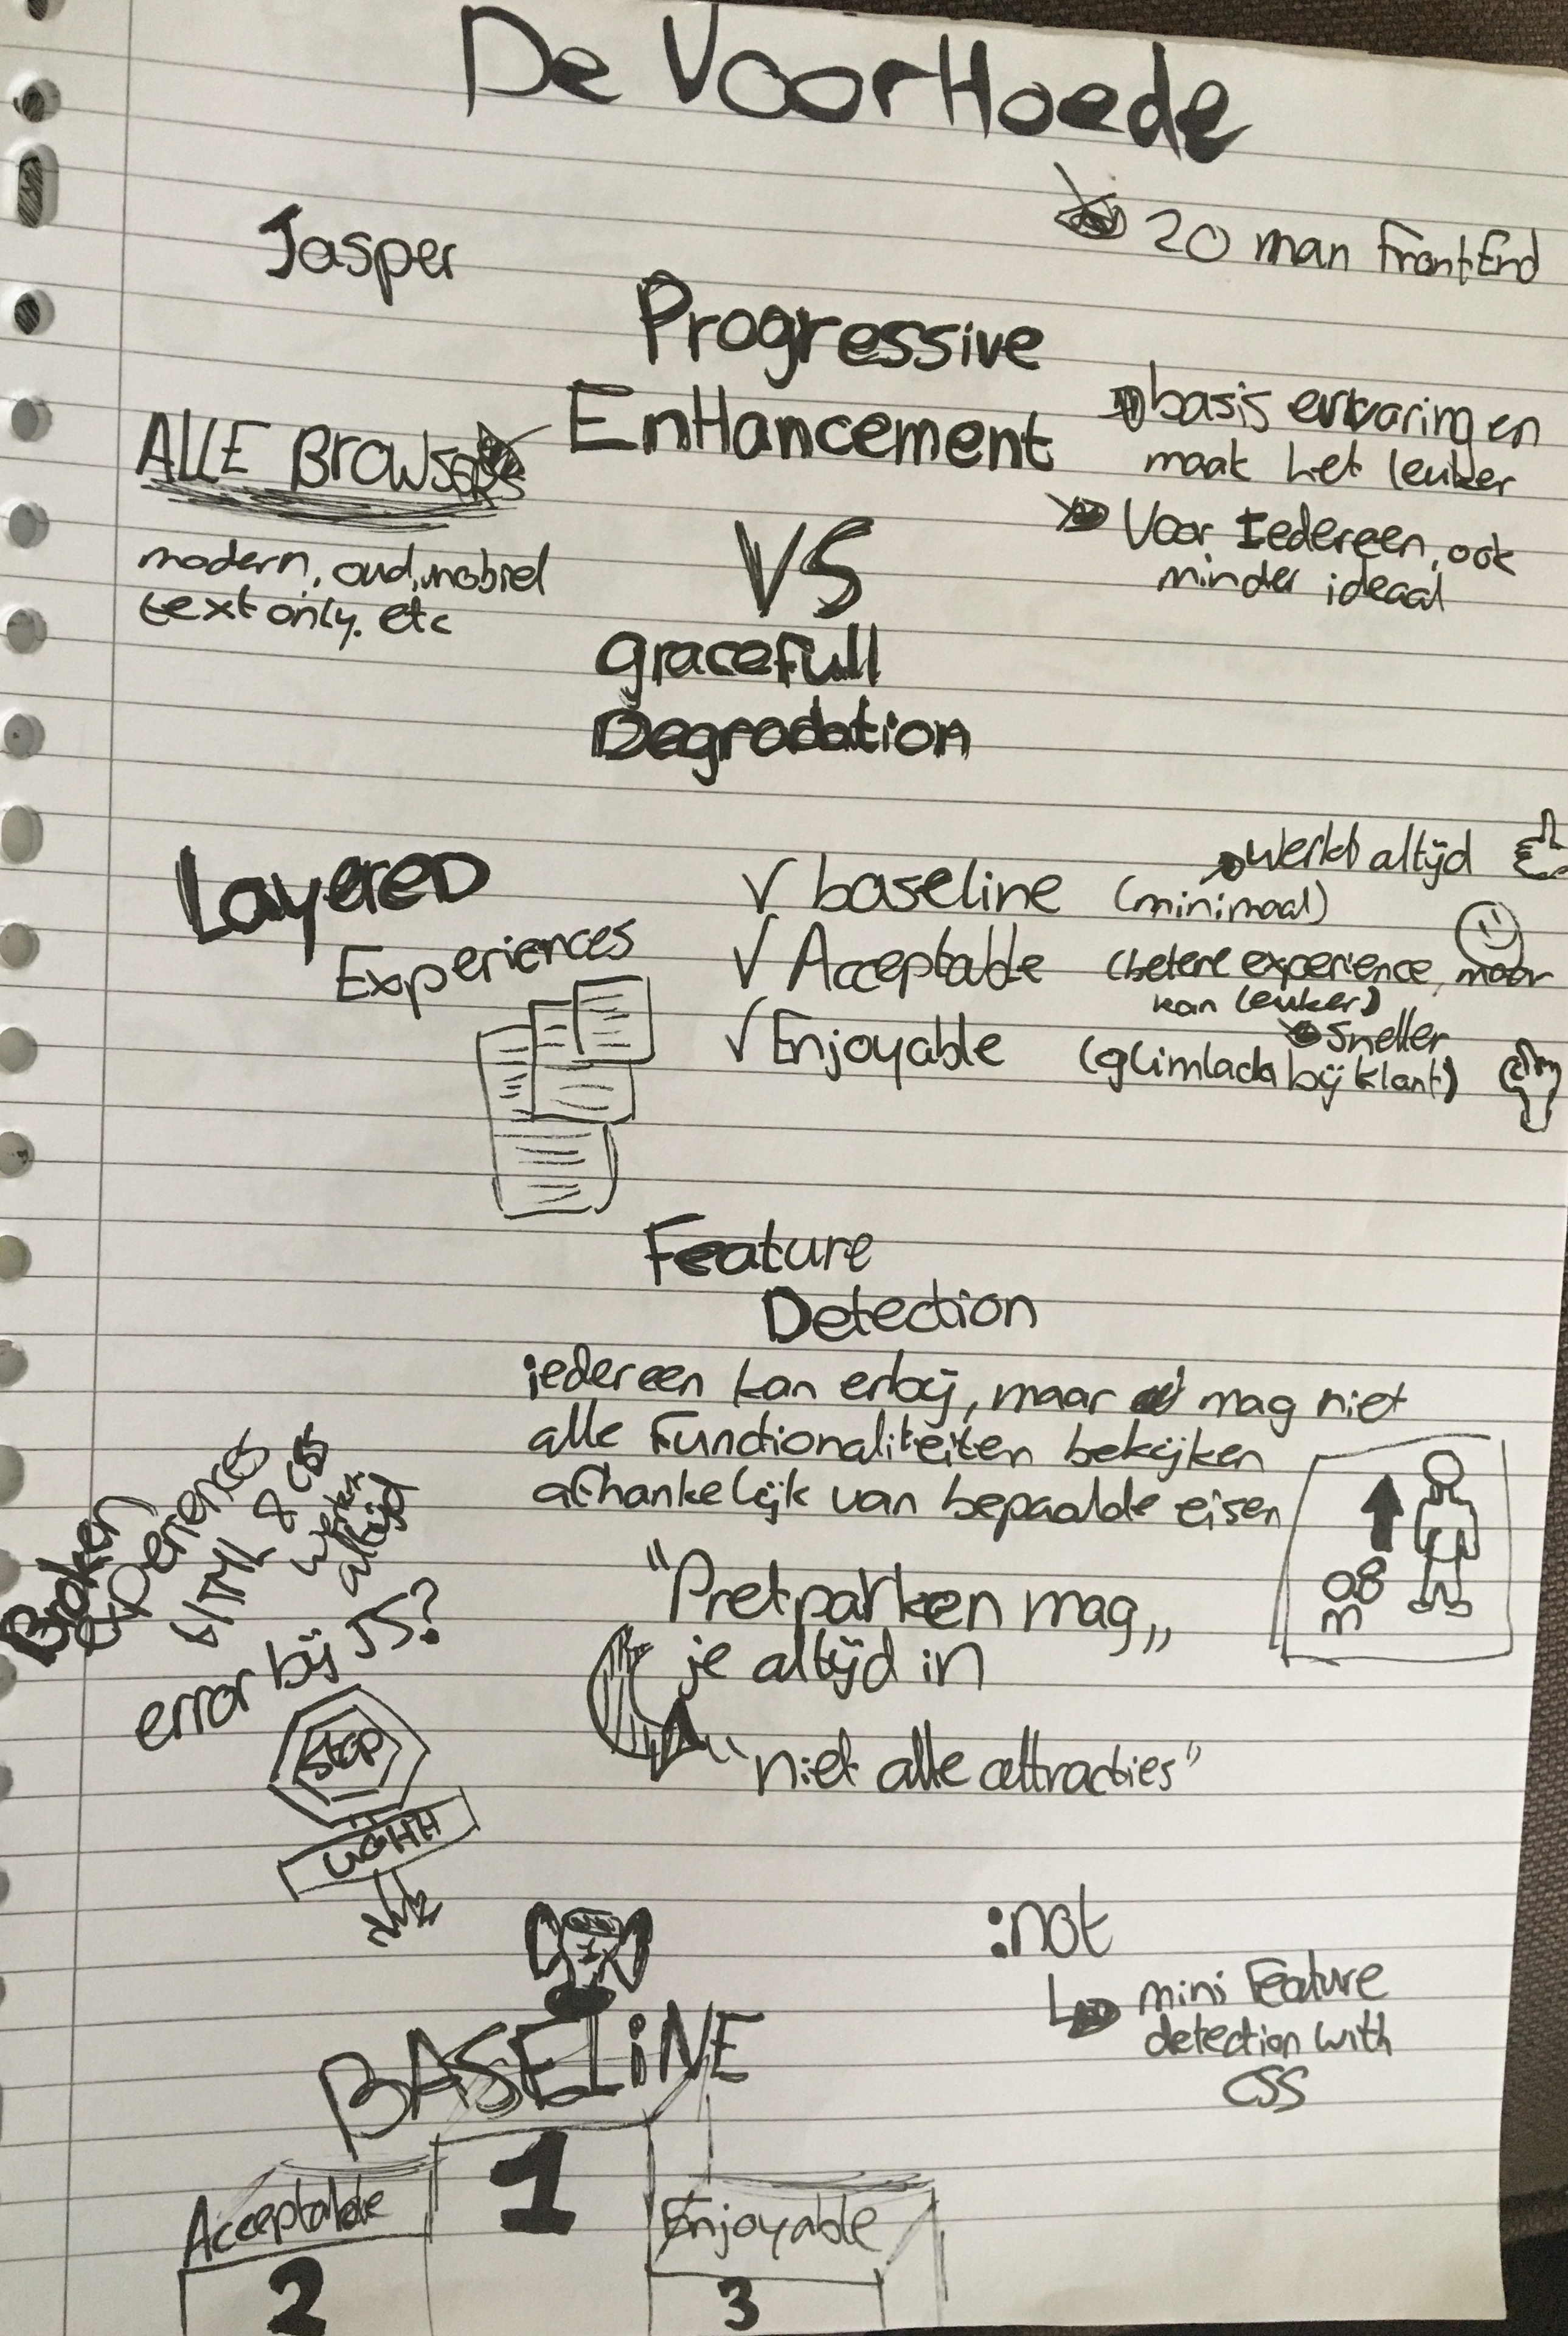 De VoorHoede
20 man FrontEnd
Jasper
Progressive
EnHancement
ALLE Browsers
modern, oud, mobiel
text only. etc
basis ervaring en
maak het leuker
Voor Iedereen, ook
minder ideaal
VS
gracefull
Degradation
Layered
Experiences
werkt altijd
√ baseline (minimaal)
√ Acceptable (betere experience, maar
kan leuker)
sneller
√ Enjoyable (glimlach bij klant)
Feature
Detection
iedereen kan erbij, maar mag niet
alle Functionaliteiten bekijken
afhankelijk van bepaalde eisen
0,8
m
"Pretparken mag„
je altijd in
"niet alle attracties"
Broken
experiences
HTML & CSS
werken
altijd
error bij JS?
STOP
:not
mini Feature
detection with
CSS
BASELiNE
1
Acceptable
2
Enjoyable
3